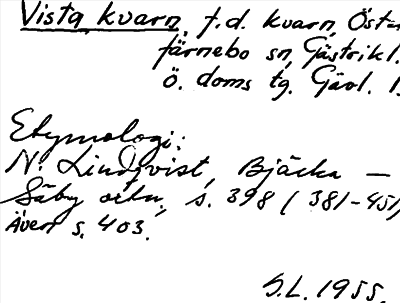 Vista kvarn, f.d. kvarn, Öster
färnebo sn, Gästrikl.
ö. doms tg. Gävl. l.
Etymologi:
N. Lindqvist, Bjäcka —
Säby ortn., s. 398 (381-451)
Även s. 403.
S.L. 1955.